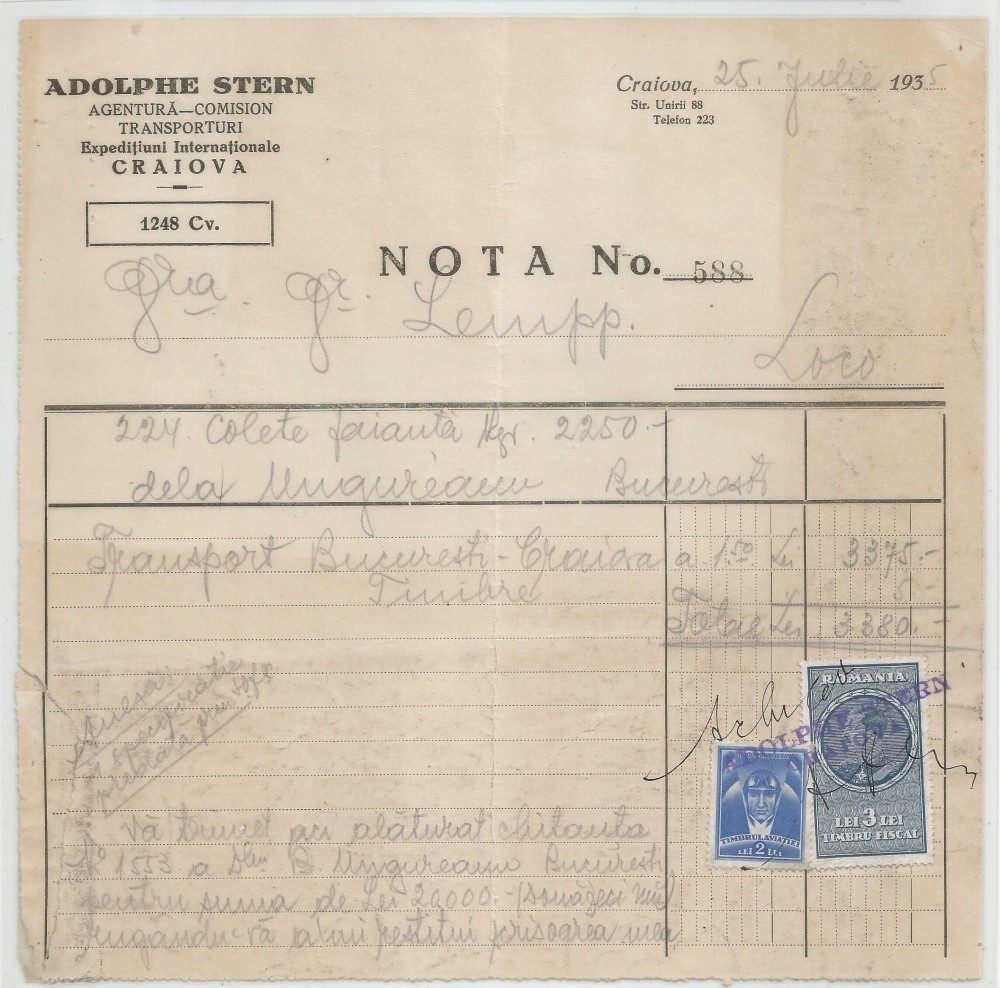 ADOLPHE STERN
AGENTURĂ—COMISION
TRANSPORTURI
Expedițiuni Internaționale
CRAIOVA
1248 Cv.
Craiova, 25. Julie 1935
Str. Unirii 88
Telefon 223
NOTA No. 588
Lempp.
Loco
224 colete faianta Kgr. 2250.-
dela Ungureanu Bucuresti
Transport Bucuresti-Craiova a 1.50 Lei 3375.-
Timbre 5.-
Total Lei 3380.-
Anexa:
1 specificatie
Achitat
ROMANIA
LEI 3 LEI
TIMBRU FISCAL
TIMBRUL AVIAȚIEI
LEI 2 LEI
ADOLPHE STERN
CRAIOVA
Vă trimet aci alăturat chitanta
No 1553 a Dlui B. Ungureanu Bucuresti
pentru suma de Lei 20000.- (Douăzeci mii)
rugându-vă a-mi restitui scrisoarea mea